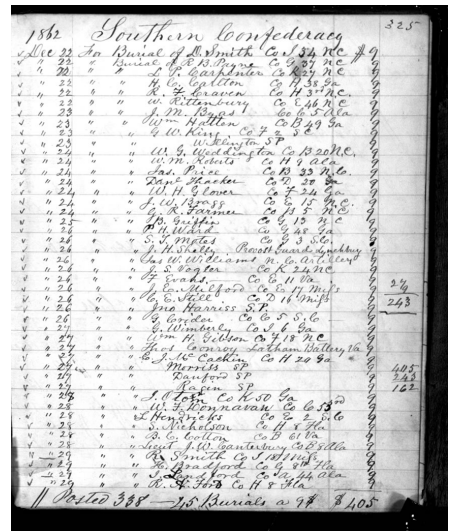 325
1862 Southern Confederacy
Dec 22 For Burial of D. Smith Co I 54 NC $ 9
" 22 " Burial of R B Payne Co G 37 NC 9
" 22 " " L P Carpenter Co K 27 NC 9
" 22 " " H C Carlton Co H 38 Ga 9
" 22 " " R F Craven Co H 3rd NC. 9
" 22 " " W. Rittenbury Co E 46 NC 9
" 23 " " J M Bugs Co C 5 Ala 9
" 23 " " Wm Hatten Co D 49 Ga 9
" 23 " " G W King Co F 2 S C 9
" 23 " " Welington SP 9
" 24 " " W. G. Weddington Co B 20 N.C. 9
" 24 " " W. M. Roberts Co H 9 Ala 9
" 24 " " Jas. Price Co B 33 N.Co. 9
" 24 " " Danl Thacker Co D. 20 Ga 9
" 24 " " W. H Glover Co F 24 Ga 9
" 24 " " J. W. Bragg Co E 15 N.C. 9
" 24 " " G R Farmer Co B 5 N.C. 9
" 25 " " J B Griffin Co G 13 N C 9
" 26 " " P H Ward Co G 48 Ga 9
" 26 " " S. T. Mates Co G 3 S.Co.
" 26 " " J. H. Shelly Provost Guard Lynchburg 9
" 26 " " Jas W. Williams N. C. Artillery 9
" 26 " " J. S. Vogter Co K 24 NC 9
" 26 " " Evans. Co E 11 Va 9
" 26 " " J. C. Milford Co E 17 Miss 9 27/9
" 26 " " C. E. Still Co D 16 Miss 9 243
" 26 " " Jno Harriss S.P. 9
" 26 " " Crider Co E 5 S.Co 9
" 27 " " G. Wimberly Co I 6 Ga 9
" 27 " " Wm H. Gibson Co F 18 NC 9
" 27 " " Thos Conroy Latham Battery Va 9
" 27 " " E. J. McCackin Co H 24 Ga 9
" 27 " " Morriss SP 9 405
" 27 " " Danford SP 9 243
" 27 " " Ragin SP 9 162
" 28 " " J. Co K 50 Ga 9
" 28 " " W. F. Honnavan Co C 53rd 9
" 28 " " Hendricks Co E 2 S.Co 9
" 28 " " S. Nicholson Co H 8 Fla 9
" 28 " " B. C. Cotton Co B 61 Va 9
" 28 " " Lieut J. W. Canterbury Co B Ala 9
" 29 " " R. Smith Co I 18 Miss 9
" 29 " " H. Bradford Co G 8th Fla 9
" 29 " " J. Langford Co A 44 Ala 9
" 29 " " R. A. Ford Co H 8 Fla 9
Posted 338 — 45 Burials a 9$ $405